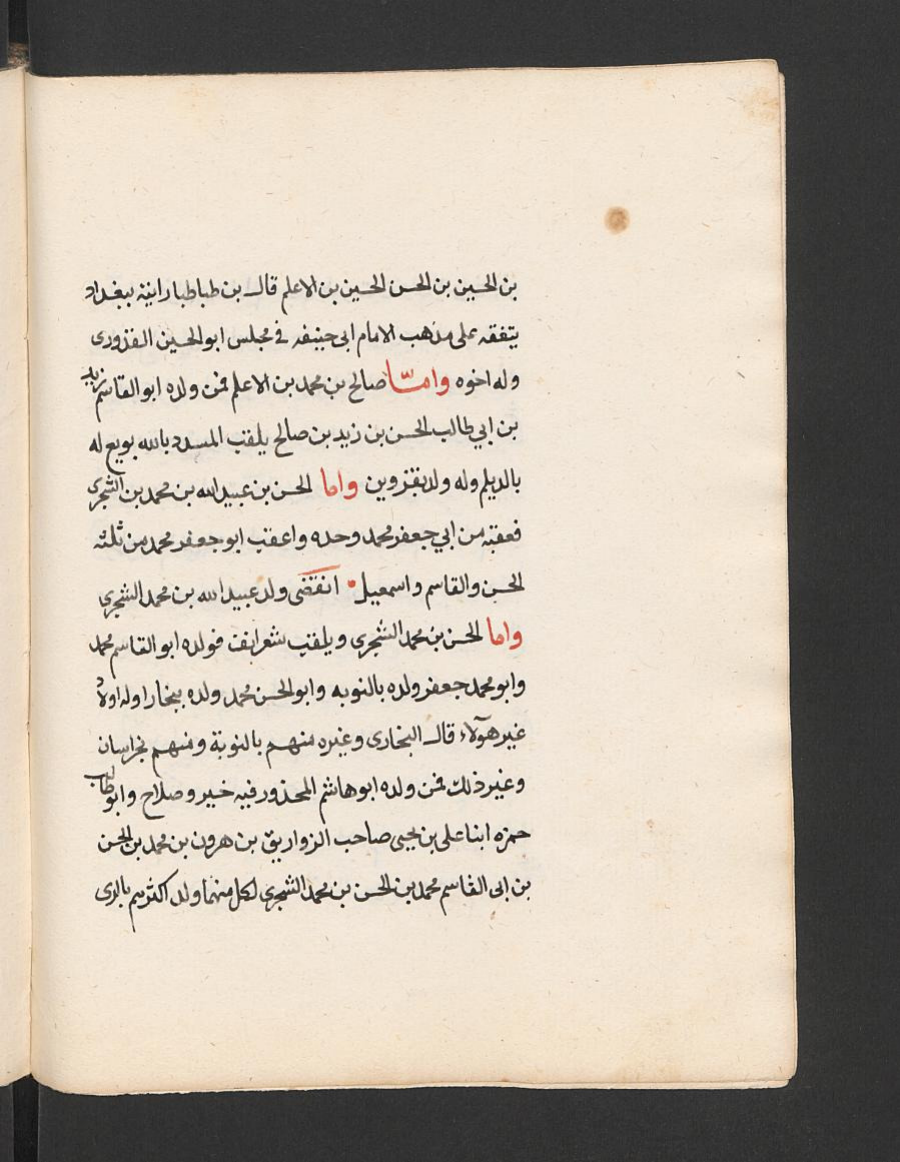 بن الحسين بن الحسن الحسين بن الاعلم قال بن طباطبا راىته ببغداد
يتفقه على مذهب الامام ابى حنيفه فى مجلس ابو الحسين القدورى
وله اخوه وامّا صالح بن محمد بن الاعلم فمن ولده ابو القاسم زيد
بن ابي طالب الحسن بن زيد بن صالح يلقب المسدد بالله بويع له
بالديلم وله ولد بقزوين واما الحسن بن عبيد الله بن محمد بن الشجرى
فعقبه من ابي جعفر محمد وحده واعقب ابو جعفر محمد من ثلثه
الحسن والقاسم واسمعيل انقضى ولد عبيد الله بن محمد الشجرى
واما الحسن بن محمد الشجرى ويلقب شعرانف فولده ابو القاسم محمد
وابو محمد جعفر ولده بالنوبه وابو الحسن محمد ولده ببخارا وله اولاد
غير هؤلاء قال البخارى وغيره منهم بالنوبة ومنهم بخراسان
وغير ذلك فمن ولده ابو هاشم المحذور فيه خير وصلاح وابو طالب
حمزه ابنا على بن يحيى صاحب الزواريق بن هرون بن محمد بن الحسن
بن ابى القاسم محمد بن الحسن بن محمد الشجرى لكل منهما ولد اكثرهم بالرى